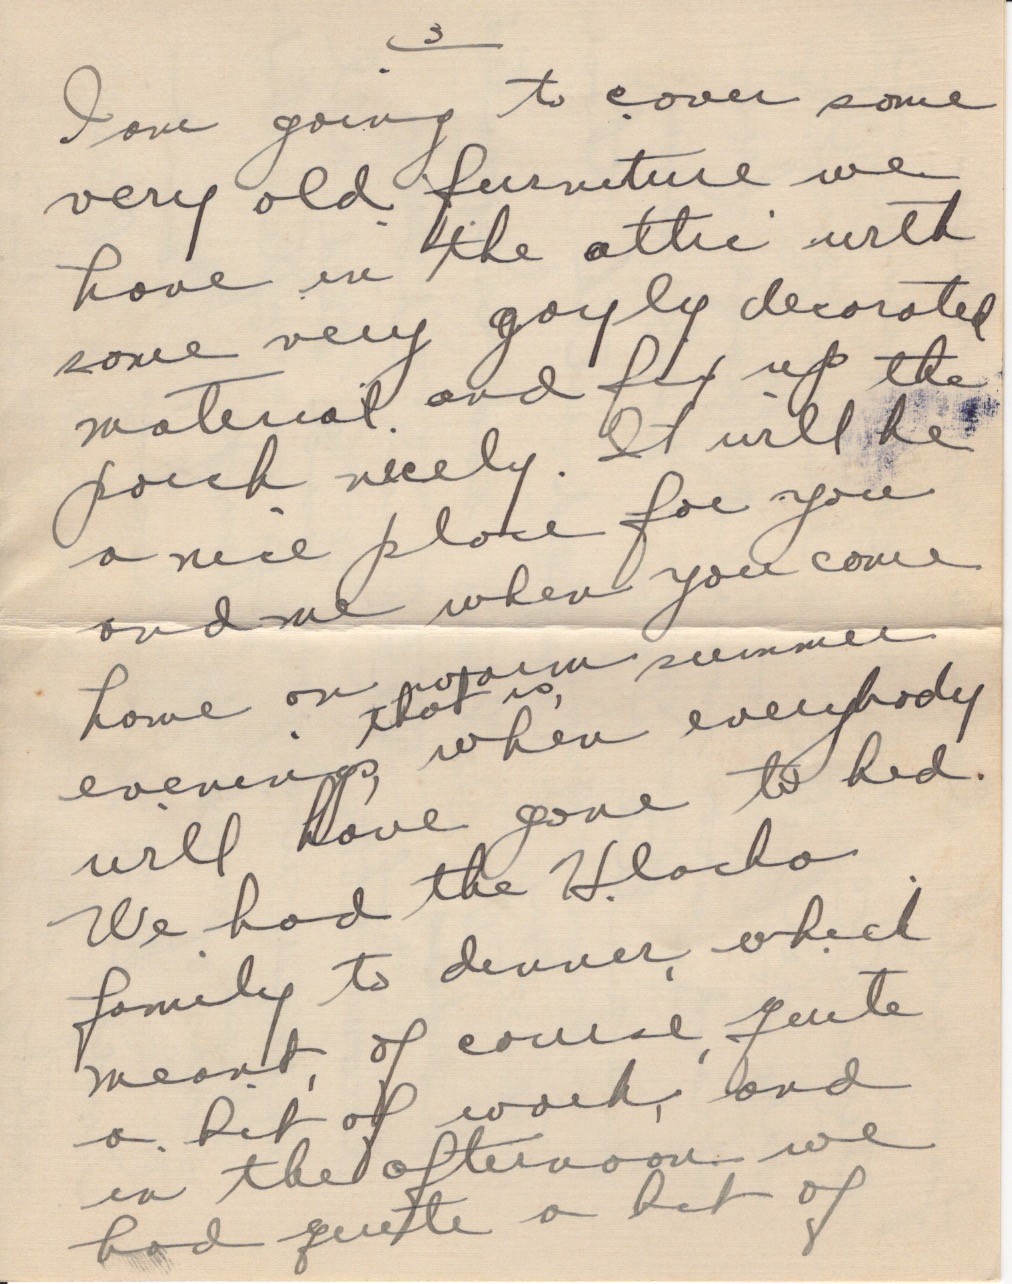 3
I am going to cover some
very old furniture we
have in the attic with
some very gayly decorated
material and fix up the
porch nicely. It will be
a nice place for you
and me when you come
home on warm summer
that is,
evenings, when everybody
will have gone to bed.
We had the Hlacha
family to dinner, which
meant, of course, quite
a bit of work, and
in the afternoon we
had quite a bit of